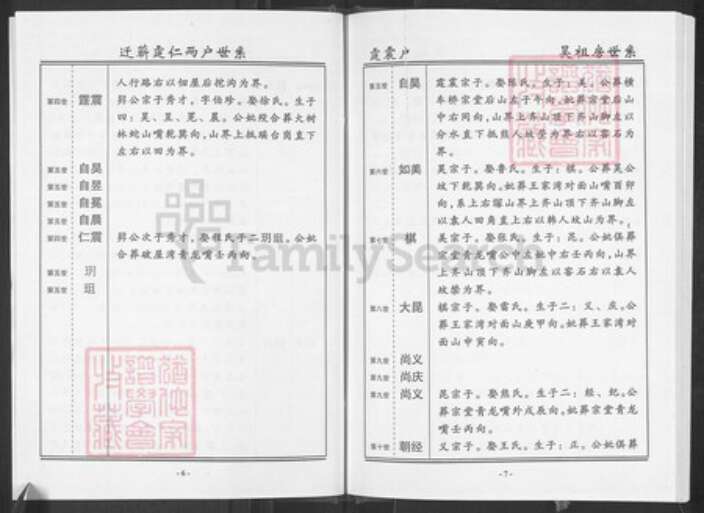 迁蕲霆仁两户世系
人行路右以佃屋后挖沟为界。
第四世 霆震 舜公宗子秀才,字伯珍。娶徐氏。生子
四:昊、昱、冕、晨。公妣殁合葬大树
林蛇山嘴乾巽向,山界上抵瑞台岗直下
左右以田为界。
第五世 自昊
第五世 自昱
第五世 自冕
第五世 自晨
第四世 仁震 舜公次子秀才,娶程氏子二玥珇。公妣
合葬破屋湾青龙嘴壬丙向。
第五世 玥
第五世 珇
-6-
霆震户 昊祖房世系
第五世 自昊 霆震宗子。娶陈氏。生子:美。公葬横
车桥宗堂后山左子午向。妣葬宗堂后山
中右同向,山界上齐山顶下齐山脚左以
分水直下抵熊人坟茔为界右以窖石为
界。
第六世 如美 昊宗子。娶鲁氏。生子:棋。公葬昊公
坟下乾巽向。妣葬王家湾对面山嘴酉卯
向,系上右塚山界上齐山顶下齐山脚左
以袁人田角直上右以韩人坟山为界。
第七世 棋 美宗子。娶张氏。生子:昆。公妣俱葬
宗堂青龙嘴公中左妣中右壬丙向,山界
上齐山顶下齐山脚左以窖石右以袁人
坟禁为界。
第八世 大昆 棋宗子。娶雷氏。生子二:义、庆。公
葬王家湾对面山庚甲向。妣葬王家湾对
面山申寅向。
第九世 尚义
第九世 尚庆
第九世 尚义 昆宗子。娶熊氏。生子二:经、纪。公
葬宗堂青龙嘴外戍辰向。妣葬宗堂青龙
嘴壬丙向。
第十世 朝经 义宗子。娶王氏。生子:正。公妣俱葬
-7-
FamilySearch